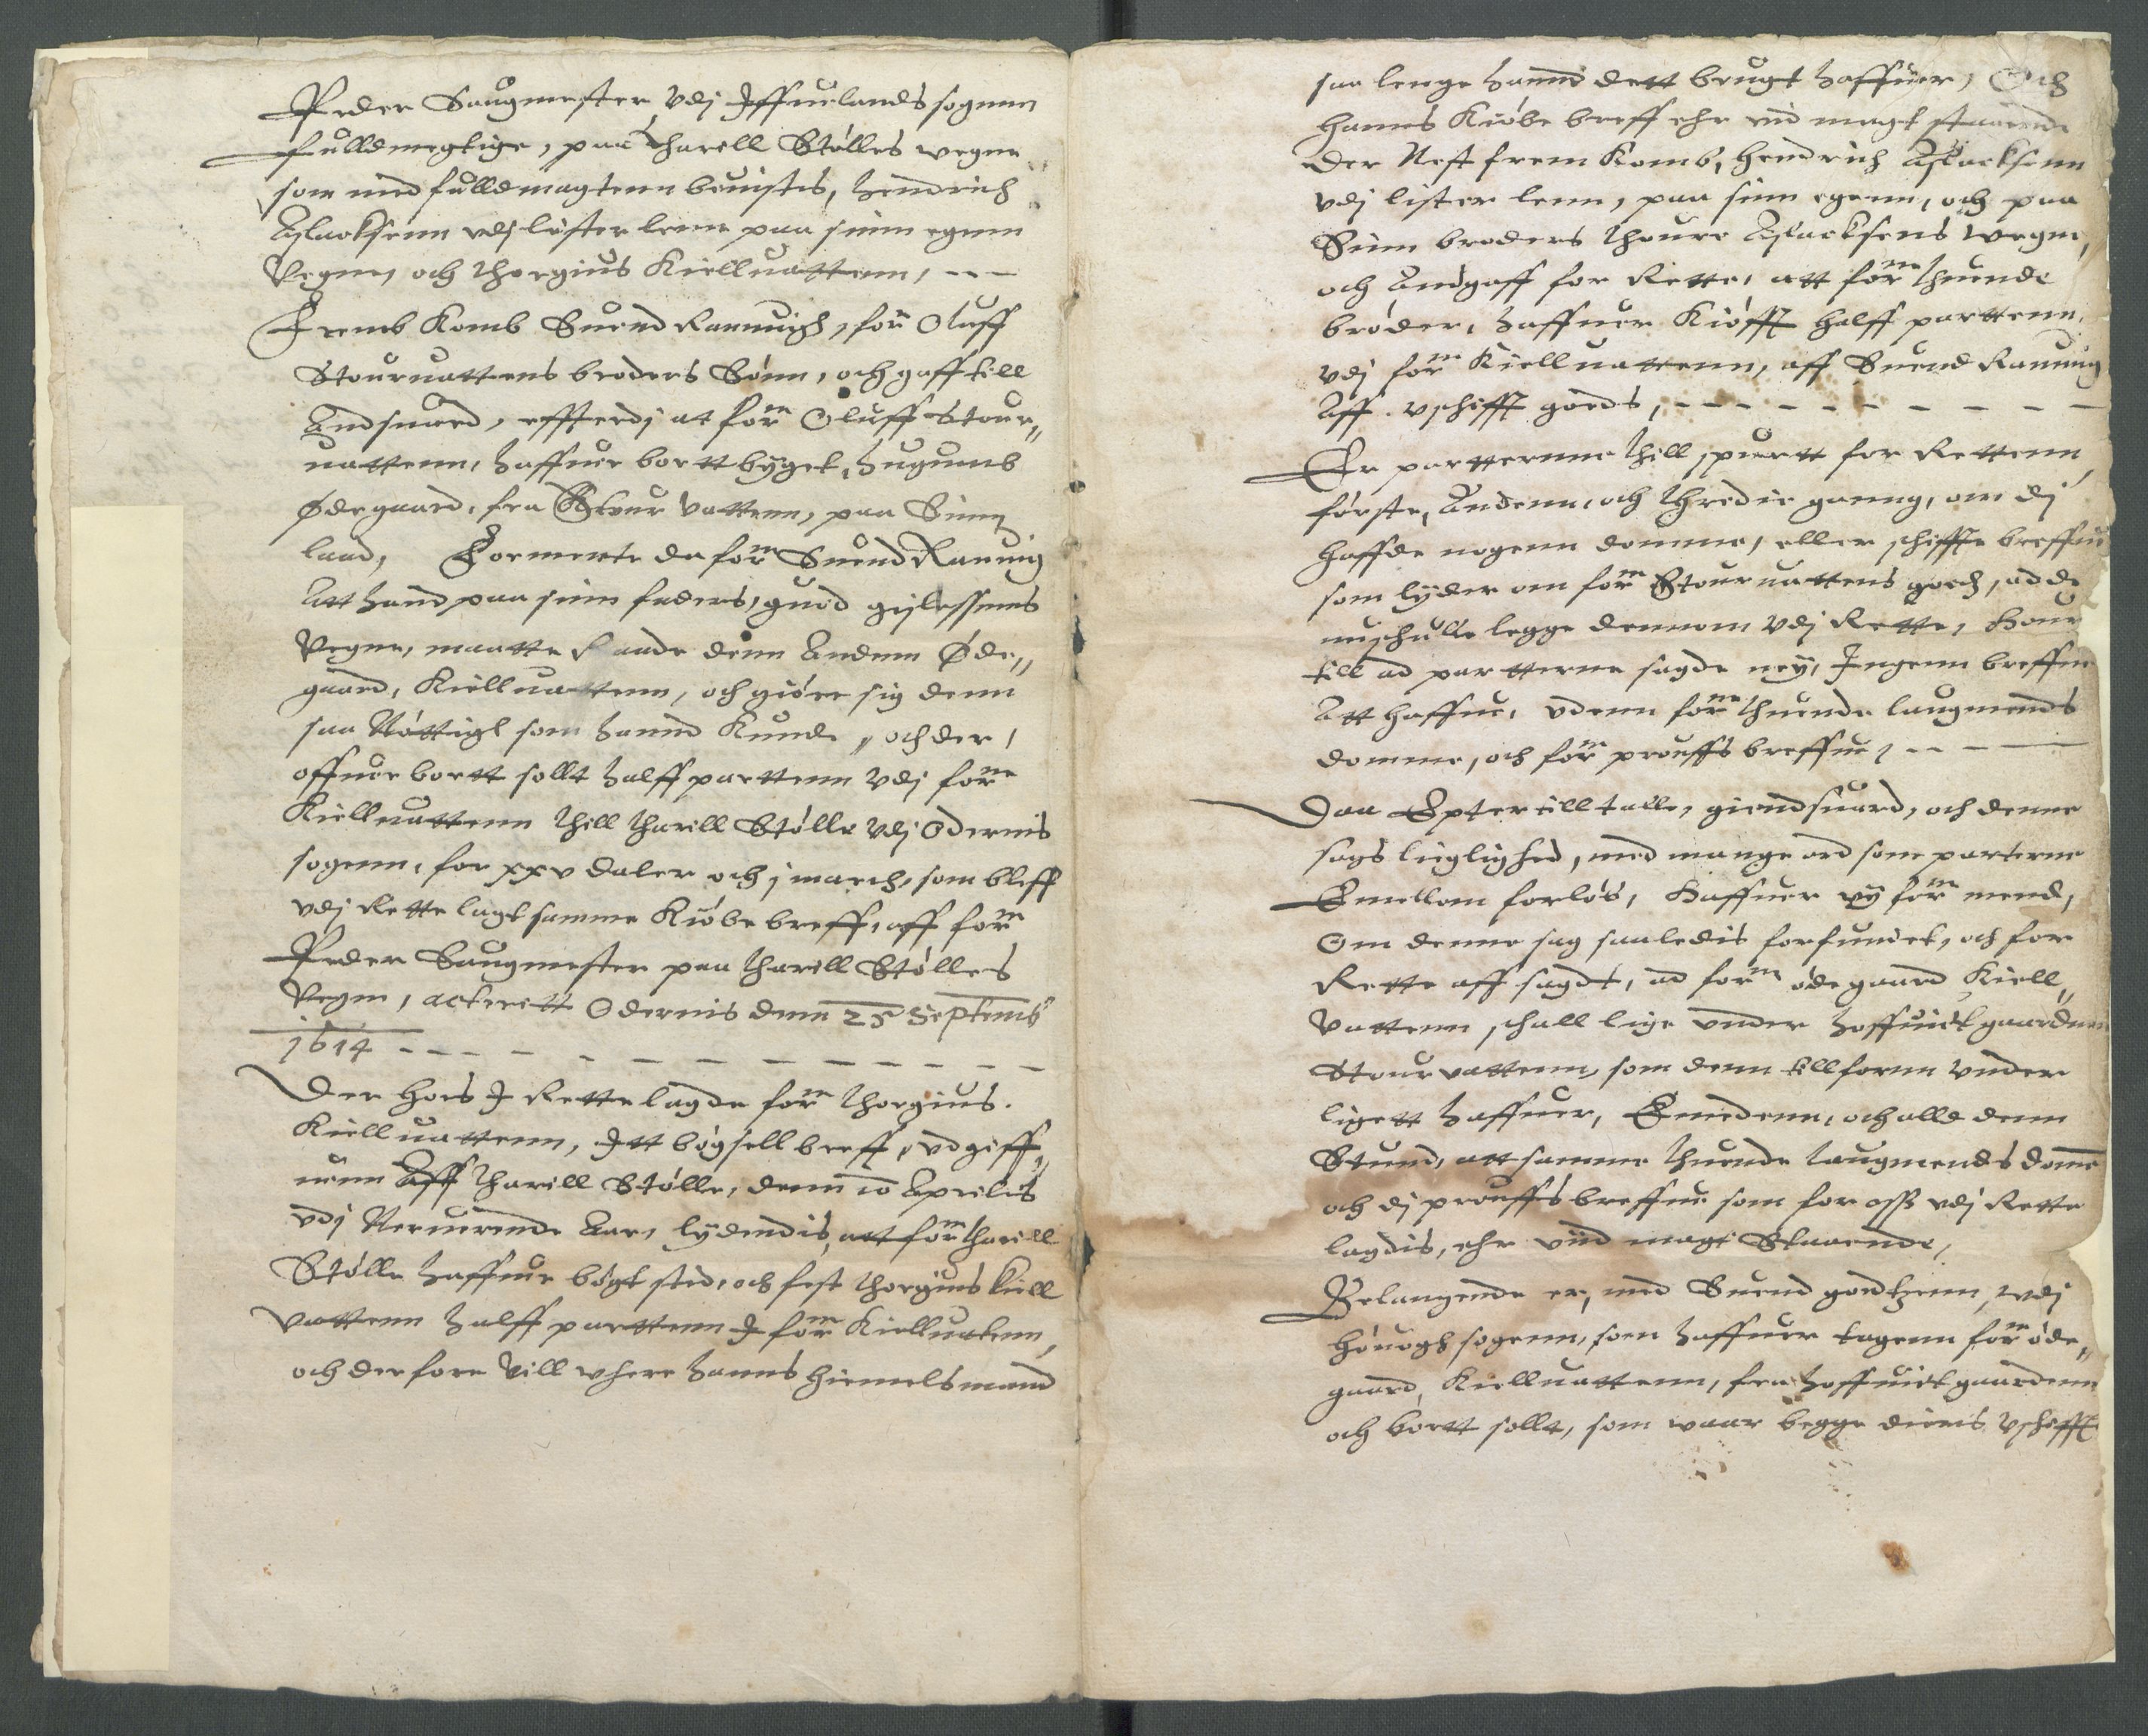 Peder Saugmester Vdj Iffuelands sognnn
fulldmegtige, paa Tharell Stølles wegne
som med fulldmagtenn beuistes, hendrich
Aslacksenn vdj lister lenn paa sinn egenn
Vegne, och thorgius Kielluattenn, ---
Fremb Komb Suend Rannuigh, for Oluff
Stouruattens broders Sønn, och gaff till
Andsuard, effterdj at forne Oluff Stour„
uattenn, haffuer bortt bÿget, hugumb
Ødegaard, fra Stour Vattenn, paa Sinn
land, Formente da forne Suend Rannig
Att hand paa sinn faders, gud
Vegne, maatte Raade denn Anden Øde„
gaard, Kielluattenn, och giøre sig denn
saa Nøttigt som hannd Kunde, och der,
offuer bortt sollt halff parttenn Vdj forne
Kielluattenn thill tharill Stølle Vdj Odernis
sogenn, for xxv daler och j march, som bleff
vdj Rette lagt samme Kiøbe breff, aff forne
Peder Saugmester paa tharell Stølles
Vegne, acterit Odernis denn 25 Septemb
1614 - - - - - - - - - -
Der hoes I Rette lagde forne thorgius
Kielluattenn, Itt bøgsell breff, vdgiff„
uenn Aff tharill Stølle, denn 10 Aprilis
vdj Neruerende Aar, lydendis, att forne tharill
Stølle haffuer bøgt sted, och fest thorgius Kiell
vattenn halff parttenn I forne Kielluatenn,
och derfore vill where hanns hiemelsmand
saa lenge hannd dett brugt haffuer, Och
hanns Kiøbe breff ehr ved magt staaende
Der Nest frem Komb, hendrich Aslacksenn
vdj lister lenn, paa sinn egenn, och paa
Sinn broders thoure Aslacksens wegne,
och Andgaff for Rette, att forne thuende
brøder, haffuer Kiøfft halff parttenn,
vdj forne Kielluattenn, aff Suend Rannig
Aff vschifft goeds, - - - - - - - -
Er partterne thill spurtt for Rettenn
første, Andenn, och thredie ganng, om dj
haffde nogenn domme, eller schiffte breffue
som lyder om forne Stouruattens goeds, ad de
nu schulle legge dennom Vdj Rette, Hour
till ad partterne sagde neÿ, Ingenn breffue
Att haffue, vdenn forne thuende laugmends
domme, och forne prouffs breffue, - - -
Daa Epter till talle, giendsuard, och denne
sags lieglighed, med mange ord som parterne
Emellom forløs, Haffuer vÿ forne mend,
Om denne sag saaledis forfundet, och for
Rette aff sagdt, ad forne øde gaard Kiell„
Vattenn schall lige vnder hoffuidt gaarden
Stouruattenn, som denn till fornn vnder
ligett haffuer, Emedenn, och alld denn
Stund, att samme thuende laugmends domme
och dj prouffs breffue som for oss vdj Rette
lagdis, ehr ved magt Staaende,
Belangende er, med Suend godtzenn, vdj
høuogh sogenn, som haffuer tagenn forne øde„
gaard, Kielluattenn, fra hoffuidt gaardenn
och bortt sollt, som waar begge dieris vschifft